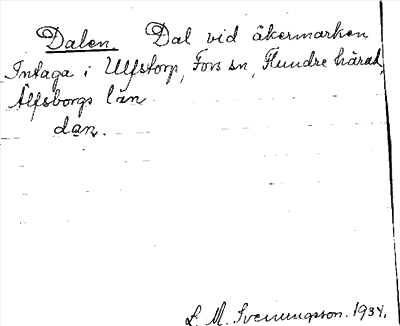 Dalen. Dal vid åkermarken
Intaga i Ulfstorp, Fors sn, Flundre härad,
Älfsborgs län
dan.
L. M. Svenungsson. 1934.